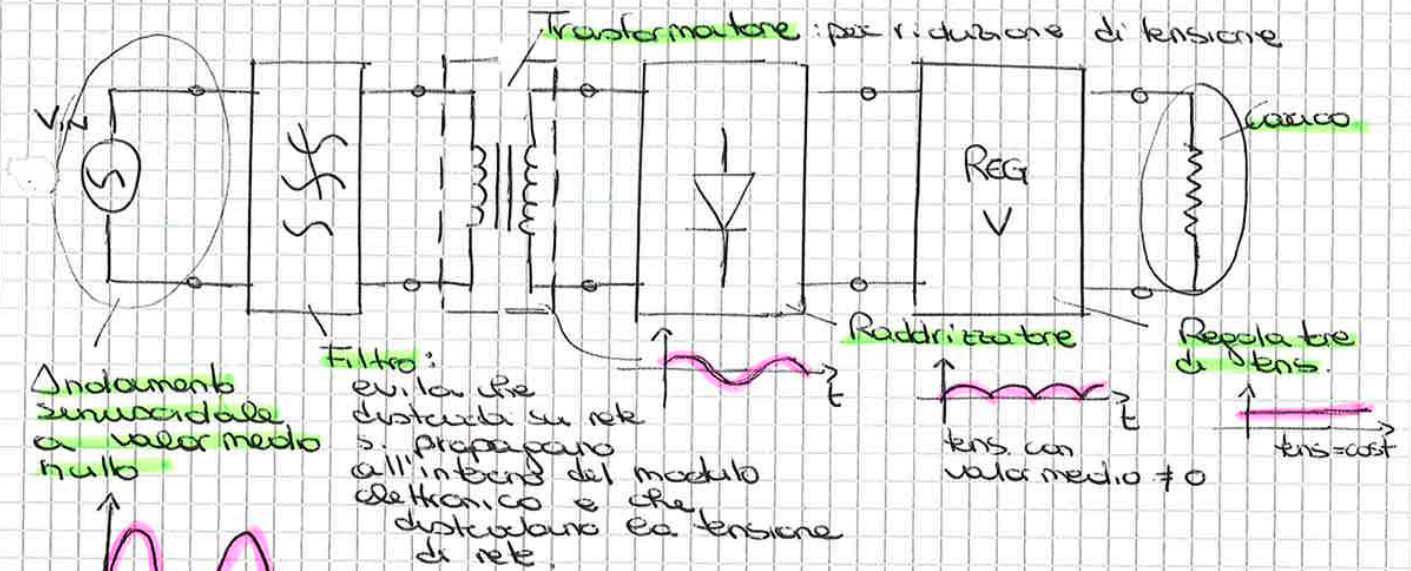 Trasformatore: per riduzione di tensione
VIN
REG
V
Carico
Raddrizzatore
Regolatore
di tens.
Filtro:
Andamento
sinusoidale
a valor medio
nullo
evita che
disturbi su rete
si propagano
all'interno del modulo
elettronico e che
disturbano la tensione
di rete.
t
t
tens. con
valor medio ≠ 0
tens=cost